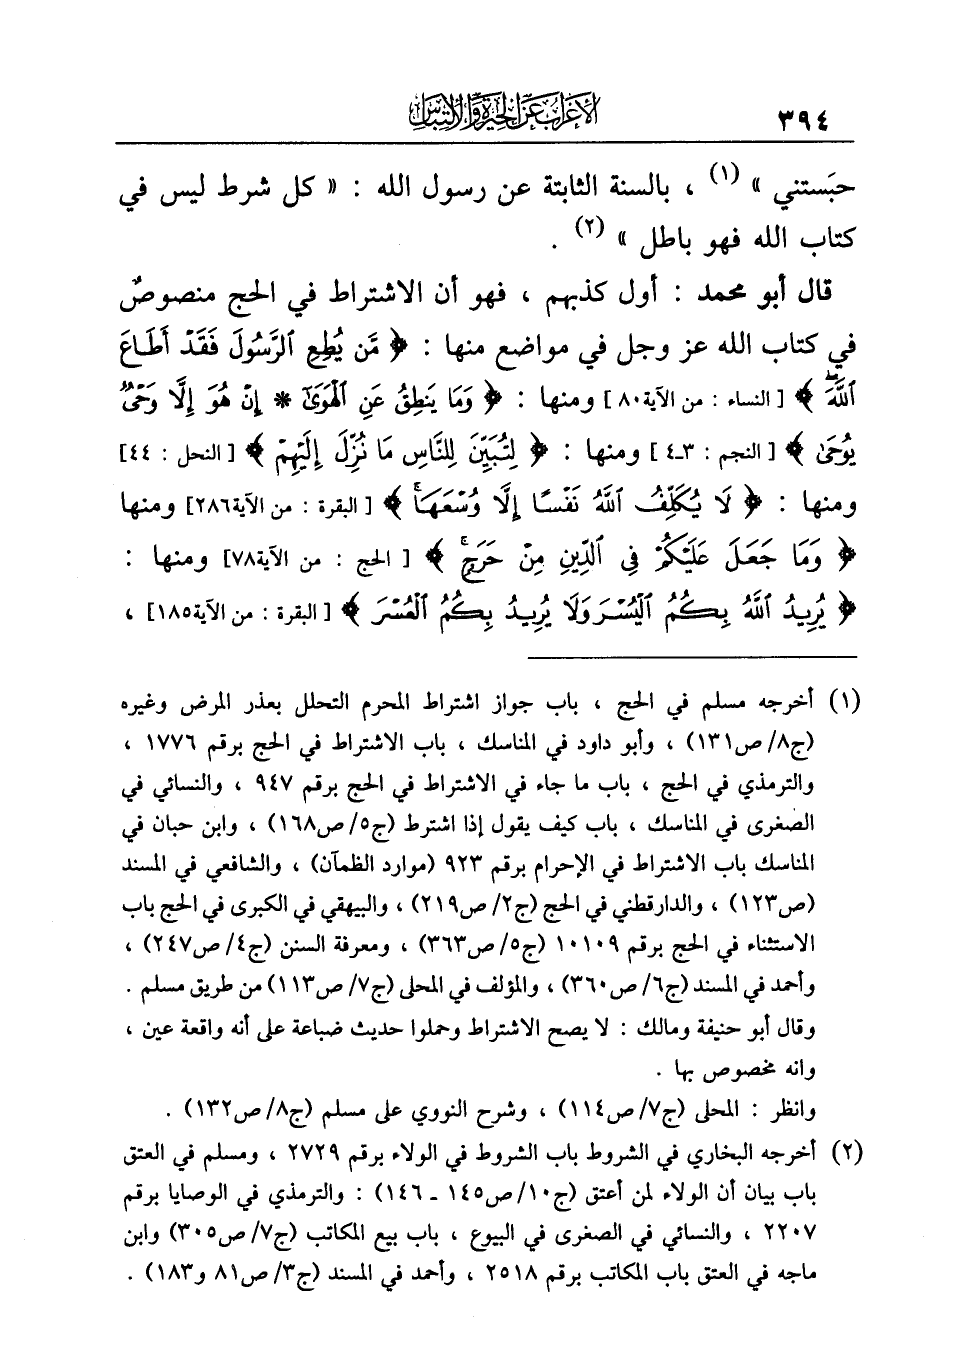 ٣٩٤ الإعراب عن الحيرة والالتباس
حبَستني » (١) ، بالسنة الثابتة عن رسول الله : « كل شرط ليس في
كتاب الله فهو باطل » (٢) .
قال أبو محمد : أول كذبهم ، فهو أن الاشتراط في الحج منصوصٌ
في كتاب الله عز وجل في مواضع منها : ﴿ مَّن يُطِعِ ٱلرَّسُولَ فَقَدْ أَطَاعَ
ٱللَّهَۖ ﴾ [ النساء : من الآية٨٠] ومنها : ﴿ وَمَا يَنطِقُ عَنِ ٱلْهَوَىٰٓ * إِنْ هُوَ إِلَّا وَحْىٌ
يُوحَىٰ ﴾ [ النجم : ٣ـ٤ ] ومنها : ﴿ لِتُبَيِّنَ لِلنَّاسِ مَا نُزِّلَ إِلَيْهِمْ ﴾ [ النحل : ٤٤]
ومنها : ﴿ لَا يُكَلِّفُ ٱللَّهُ نَفْسًا إِلَّا وُسْعَهَاۚ ﴾ [ البقرة : من الآية٢٨٦] ومنها
﴿ وَمَا جَعَلَ عَلَيْكُمْ فِى ٱلدِّينِ مِنْ حَرَجٍۚ ﴾ [ الحج : من الآية٧٨] ومنها :
﴿ يُرِيدُ ٱللَّهُ بِكُمُ ٱلْيُسْرَ وَلَا يُرِيدُ بِكُمُ ٱلْعُسْرَ ﴾ [ البقرة : من الآية١٨٥] ،
(١) أخرجه مسلم في الحج ، باب جواز اشتراط المحرم التحلل بعذر المرض وغيره
(ج٨/ ص١٣١) ، وأبو داود في المناسك ، باب الاشتراط في الحج برقم ١٧٧٦ ،
والترمذي في الحج ، باب ما جاء في الاشتراط في الحج برقم ٩٤٧ ، والنسائي في
الصغرى في المناسك ، باب كيف يقول إذا اشترط (ج٥/ ص١٦٨) ، وابن حبان في
المناسك باب الاشتراط في الإحرام برقم ٩٢٣ (موارد الظمآن) ، والشافعي في المسند
(ص١٢٣) ، والدارقطني في الحج (ج٢/ ص٢١٩) ، والبيهقي في الكبرى في الحج باب
الاستثناء في الحج برقم ١٠١٠٩ (ج٥/ ص٣٦٣) ، ومعرفة السنن (ج٤/ ص٢٤٧) ،
وأحمد في المسند (ج٦/ ص٣٦٠) ، والمؤلف في المحلى (ج٧/ ص١١٣) من طريق مسلم .
وقال أبو حنيفة ومالك : لا يصح الاشتراط وحملوا حديث ضباعة على أنه واقعة عين ،
وانه مخصوص بها .
وانظر : المحلى (ج٧/ ص١١٤) ، وشرح النووي على مسلم (ج٨/ ص١٣٢) .
(٢) أخرجه البخاري في الشروط باب الشروط في الولاء برقم ٢٧٢٩ ، ومسلم في العتق
باب بيان أن الولاء لمن أعتق (ج١٠/ ص١٤٥ ـ ١٤٦) : والترمذي في الوصايا برقم
٢٢٠٧ ، والنسائي في الصغرى في البيوع ، باب بيع المكاتب (ج٧/ ص٣٠٥) وابن
ماجه في العتق باب المكاتب برقم ٢٥١٨ ، وأحمد في المسند (ج٣/ ص٨١ و١٨٣) .